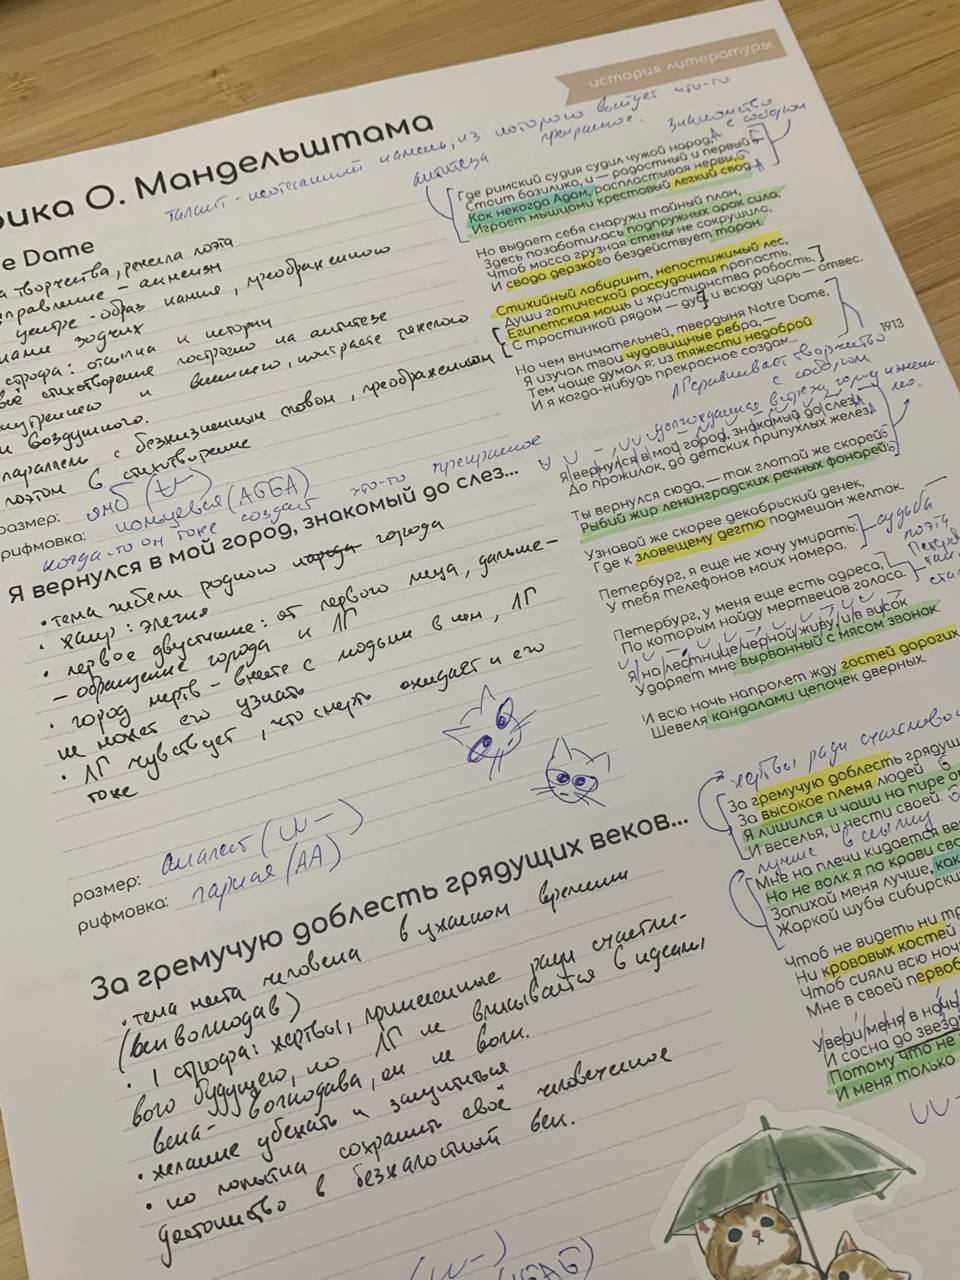 история литературы
рика О. Мандельштама
талант - неотесанный камень, из которого выйдет что-то прекрасное.
e Dame
а творчества, ремесла поэта
направление - акмеизм
центре - образ камня, преображенного
руками зодчих
строфа: отсылка к истории
всё стихотворение построено на антитезе
внутреннего и внешнего, контрасте тяжелого
и воздушного.
параллель с безжизненным словом, преображенным
поэтом в стихотворение
размер: ямб (U–)
рифмовка: кольцевая (АББА)
когда-то он тоже создаст что-то прекрасное
антитеза
знакомство с собором
Где римский судия судил чужой народ, А
Стоит базилика, и — радостный и первый Б
Как некогда Адам, распластывая нервы, Б
Играет мышцами крестовый легкий свод. А
Но выдает себя снаружи тайный план,
Здесь позаботилась подпружных арок сила,
Чтоб масса грузная стены не сокрушила,
И свода дерзкого бездействует таран.
Стихийный лабиринт, непостижимый лес,
Души готической рассудочная пропасть,
Египетская мощь и христианства робость,
С тростинкой рядом — дуб, и всюду царь — отвес.
Но чем внимательней, твердыня Notre Dame,
Я изучал твои чудовищные ребра, —
Тем чаще думал я: из тяжести недоброй
И я когда-нибудь прекрасное создам...
1913
ЛГ сравнивает творчество с собором
Я вернулся в мой город, знакомый до слез...
• тема гибели родного города города
• жанр: элегия
• первое двустишие: от первого лица, дальше -
- обращение города к ЛГ
• город мертв - вместе с людьми в нем, ЛГ
не может его узнать
• ЛГ чувствует, что смерть ожидает и его
тоже
размер: анапест (UU–)
рифмовка: парная (АА)
долгожданная встреча
Я вернулся в мой город, знакомый до слез, А
До прожилок, до детских припухлых желез. А
Ты вернулся сюда, — так глотай же скорей Б
Рыбий жир ленинградских речных фонарей. Б
Узнавай же скорее декабрьский денек,
Где к зловещему дегтю подмешан желток.
Петербург, я еще не хочу умирать:
У тебя телефонов моих номера.
судьба поэта
Петербург, у меня еще есть адреса,
По которым найду мертвецов голоса.
Я на лестнице черной живу, и в висок
Ударяет мне вырванный с мясом звонок.
И всю ночь напролет жду гостей дорогих,
Шевеля кандалами цепочек дверных.
За гремучую доблесть грядущих веков...
• тема места человека в ужасном времени
(век волкодав)
• 1 строфа: жертвы, принесенные ради счастли-
вого будущего, но ЛГ не вписывается в идеалы
века - волкодава, он не волк.
• желание убежать и защититься
• но попытка сохранить своё человеческое
достоинство в безжалостный век.
(UU–)
жертвы ради счастливого
За гремучую доблесть грядущ
За высокое племя людей Б
Я лишился и чаши на пире о
И веселья, и чести своей.
лучше в ссылку
Мне на плечи кидается век
Но не волк я по крови сво
Запихай меня лучше, как
Жаркой шубы сибирски
Чтоб не видеть ни тр
Ни кровавых костей
Чтоб сияли всю ноч
Мне в своей первоб
Уведи меня в ночь
И сосна до звезд
Потому что не
И меня только
UU–